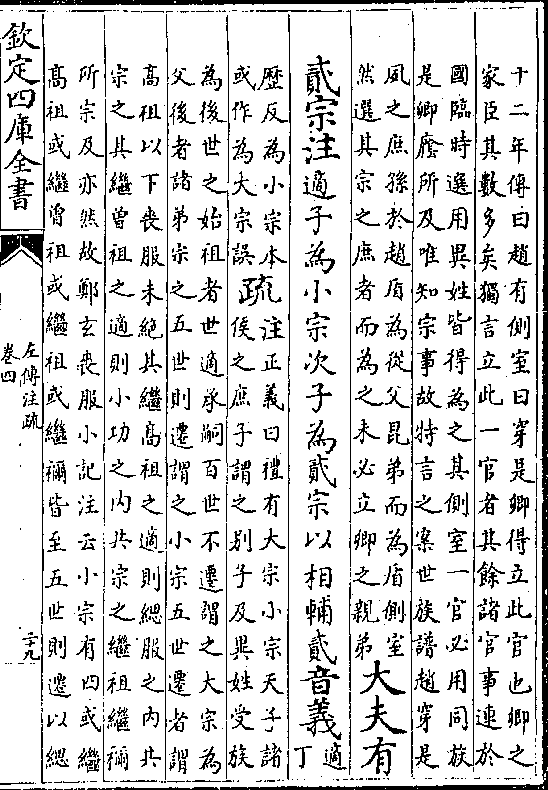 十二年傳曰趙有側室曰穿是卿得立此官也卿之
家臣其數多矣獨言立此一官者其餘諸官事連於
國臨時選用異姓皆得為之其側室一官必用同族
是卿廕所及唯知宗事故特言之案世族譜趙穿是
夙之庶孫於趙盾為從父昆弟而為盾側室
然選其宗之庶者而為之未必立卿之親弟
大夫有
貳宗注適子為小宗次子為貳宗以相輔貳音義適丁
歴反為小宗本
或作為大宗誤
疏注正義曰禮有大宗小宗天子諸
侯之庶子謂之别子及異姓受族
為後世之始祖者世適承嗣百世不遷謂之大宗為
父後者諸弟宗之五世則遷謂之小宗五世遷者謂
髙祖以下喪服未絶其繼髙祖之適則緦服之内共
宗之其繼曾祖之適則小功之内共宗之繼祖繼禰
所宗及亦然故鄭玄喪服小記注云小宗有四或繼
髙祖或繼曾祖或繼祖或繼禰皆至五世則遷以緦
欽定四庫全書
左傳注疏
卷四
二十九